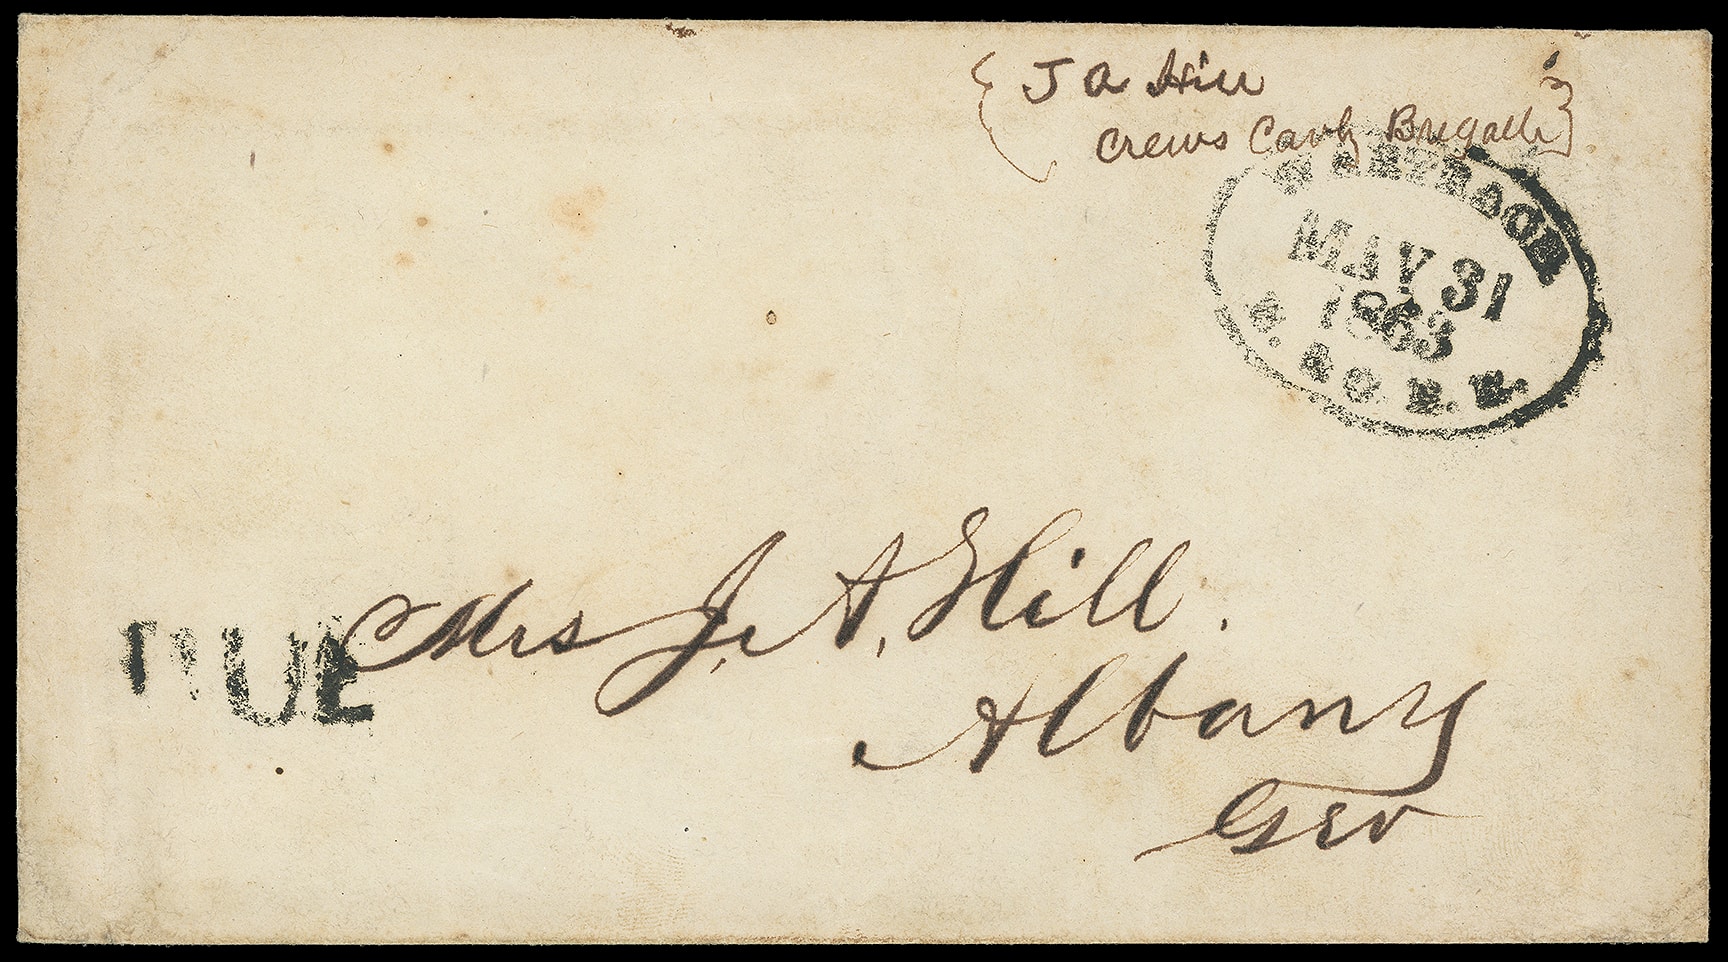 J A Hill
Crews Cavly Brigade
WARTRACE
MAY 31
1863
N. & C. R. R.
DUE
Mrs J. A. Hill.
Albany
Geo